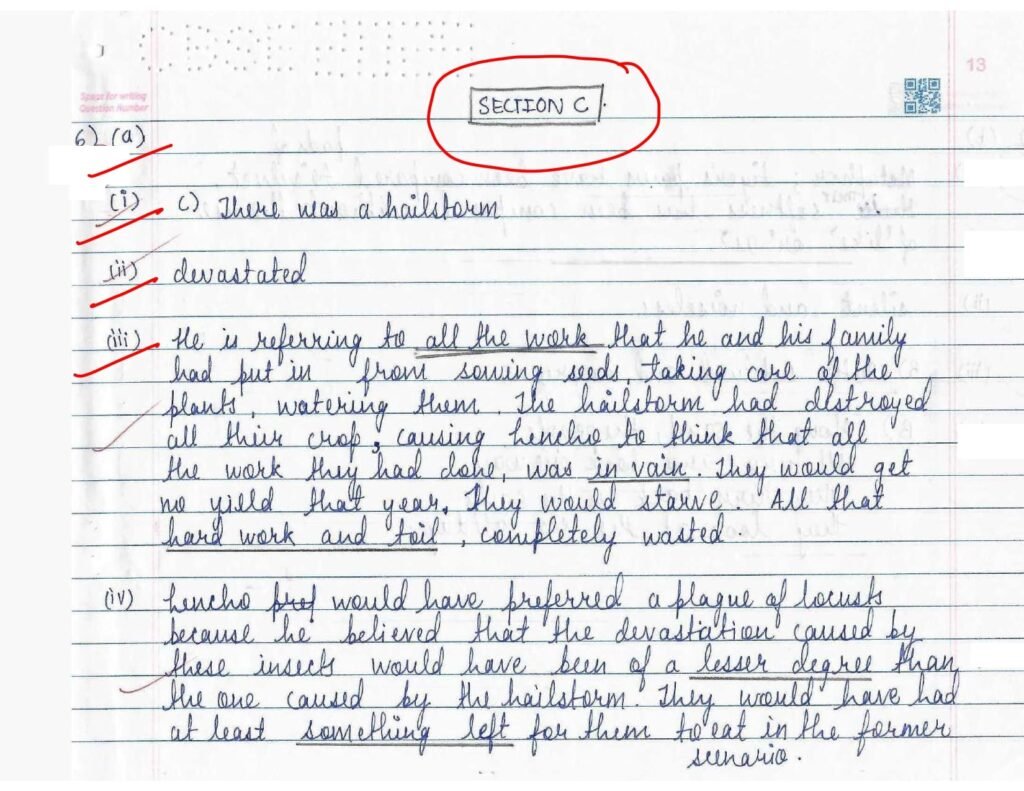 13
SECTION C.
Space for writing
Question Number
6) (a)
(i) c) There was a hailstorm
(ii) devastated
(iii) He is referring to all the work that he and his family
had put in from sowing seeds, taking care of the
plants, watering them. The hailstorm had destroyed
all their crop, causing Lencho to think that all
the work they had done, was in vain. They would get
no yield that year. They would starve. All that
hard work and toil, completely wasted.
(iv) Lencho pref would have preferred a plague of locusts
because he believed that the devastation caused by
these insects would have been of a lesser degree than
the one caused by the hailstorm. They would have had
at least something left for them to eat in the former
scenario.